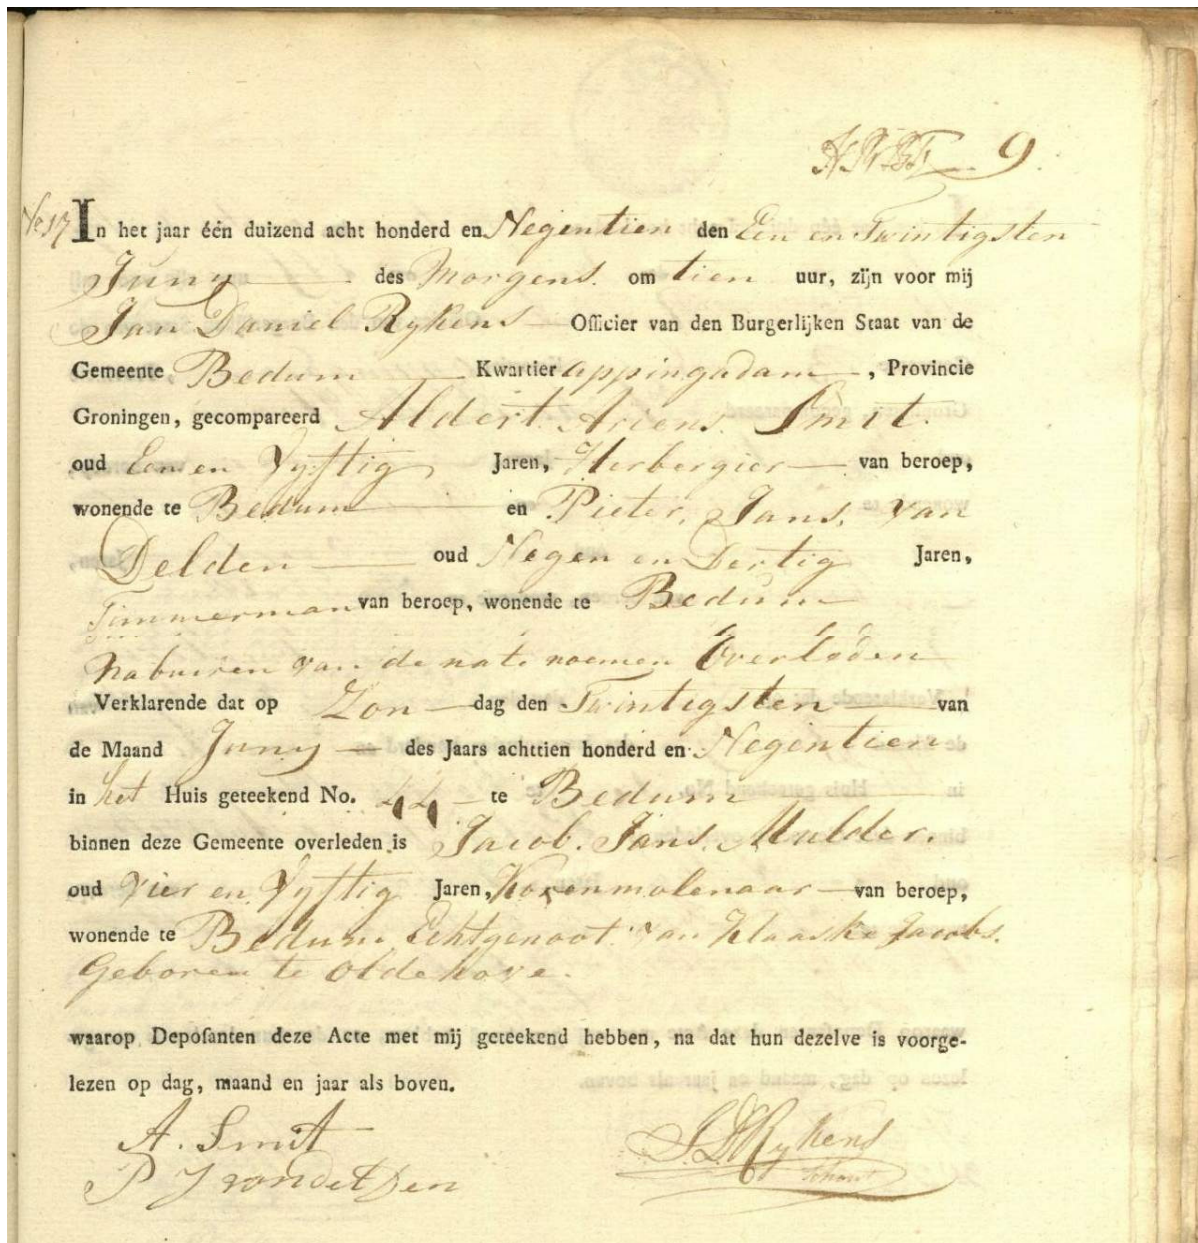 9
No 17 In het jaar één duizend acht honderd en Negentien den Een en Twintigsten
Juny des Morgens. om tien uur, zijn voor mij
Jan Daniel Rykens Officier van den Burgerlijken Staat van de
Gemeente Bedum Kwartier appingadam, Provincie
Groningen, gecompareerd Aldert Ariens Smit.
oud Een en Vyftig Jaren, Herbergier van beroep,
wonende te Bedum en Pieter Jans. van
Delden oud Negen en Dertig Jaren,
Timmerman van beroep, wonende te Bedum
Naburen van de nate noemen Overleden
Verklarende dat op Zon dag den Twintigsten van
de Maand Juny des Jaars achttien honderd en Negentien
in het Huis geteekend No. 44 te Bedum
binnen deze Gemeente overleden is Jacob. Jans. Mulder.
oud Vier en Vyftig Jaren, Korenmolenaar van beroep,
wonende te Bedum Echtgenoot van Klaaske Jacobs.
Geboren te Oldehove.
waarop Deposanten deze Acte met mij geteekend hebben, na dat hun dezelve is voorge-
lezen op dag, maand en jaar als boven.
A. Smit
P J van Delden
J D Rykens
Schout